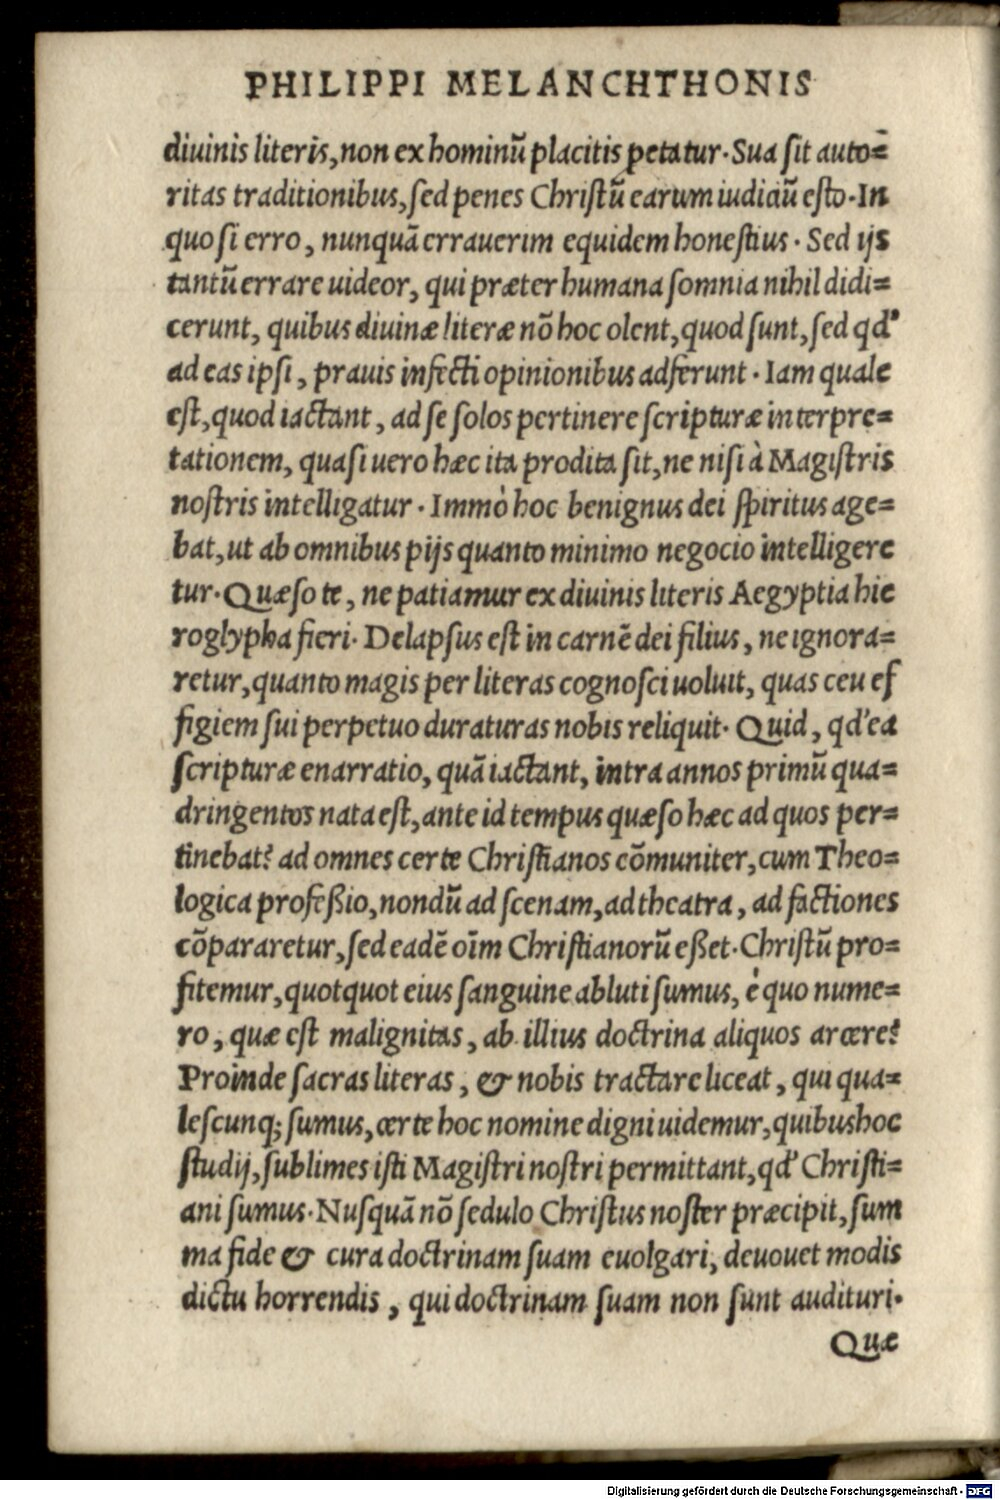 PHILIPPI MELANCHTHONIS
diuinis literis, non ex hominũ placitis petatur. Sua sit auto=
ritas traditionibus, sed penes Christũ earum iudiciũ esto. In
quo si erro, nunquã errauerim equidem honestius. Sed ijs
tantũ errare uideor, qui præter humana somnia nihil didi=
cerunt, quibus diuinæ literæ nõ hoc olent, quod sunt, sed qd'
ad eas ipsi, prauis infecti opinionibus adferunt. Iam quale
est, quod iactant, ad se solos pertinere scripturæ interpre=
tationem, quasi uero hæc ita prodita sit, ne nisi à Magistris
nostris intelligatur. Immò hoc benignus dei spiritus age=
bat, ut ab omnibus pijs quanto minimo negocio intelligere
tur. Quæso te, ne patiamur ex diuinis literis Aegyptia hie
roglypha fieri. Delapsus est in carnẽ dei filius, ne ignora=
retur, quanto magis per literas cognosci uoluit, quas ceu ef
figiem sui perpetuo duraturas nobis reliquit. Quid, qd' ea
scripturæ enarratio, quã iactant, intra annos primũ qua=
dringentos nata est, ante id tempus quæso hæc ad quos per=
tinebat? ad omnes certe Christianos cõmuniter, cum Theo=
logica profeßio, nondũ ad scenam, ad theatra, ad factiones
cõpararetur, sed eadẽ oĩm Christianorũ eßet. Christũ pro=
fitemur, quotquot eius sanguine abluti sumus, è quo nume=
ro, quæ est malignitas, ab illius doctrina aliquos arcere?
Proinde sacras literas, & nobis tractare liceat, qui qua=
lescunq; sumus, certe hoc nomine digni uidemur, quibus hoc
studij, sublimes isti Magistri nostri permittant, qd' Christi=
ani sumus. Nusquã nõ sedulo Christus noster præcipit, sum
ma fide & cura doctrinam suam euolgari, deuouet modis
dictu horrendis, qui doctrinam suam non sunt audituri.
Quæ
Digitalisierung gefördert durch die Deutsche Forschungsgemeinschaft - DFG